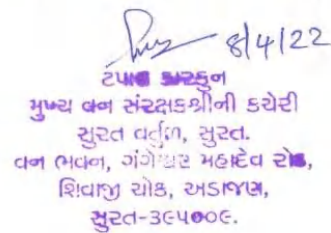 8/4/22
ટપાલ કારકુન
મુખ્ય વન સંરક્ષકશ્રીની કચેરી
સુરત વર્તુળ, સુરત.
વન ભવન, ગંગેશ્વર મહાદેવ રોડ,
શિવાજી ચોક, અડાજણ,
સુરત-૩૯૫૦૦૯.